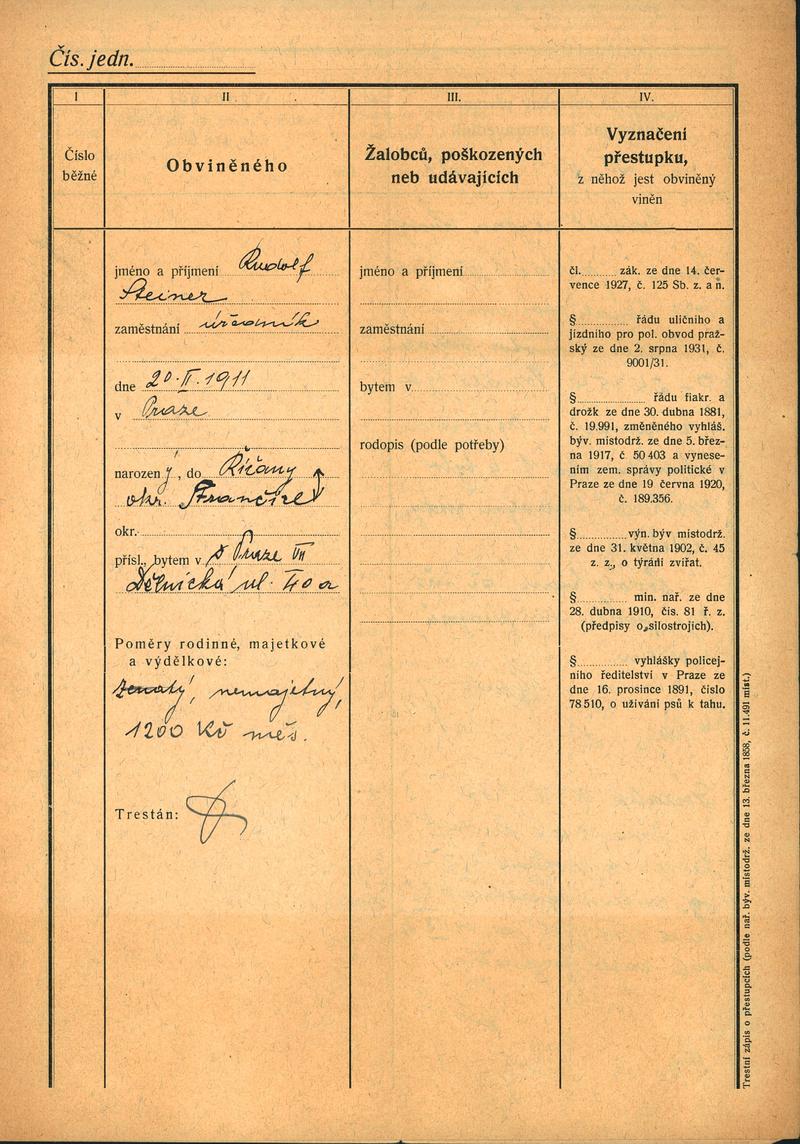 Čís. jedn.
I
II
III.
IV.
Číslo
běžné
Obviněného
Žalobců, poškozených
neb udávajících
Vyznačení
přestupku,
z něhož jest obviněný
viněn
jméno a příjmení Rudolf
Steiner
zaměstnání úředník
dne 20. II. 1911
v Praze
narozený, do Říčany
okr.
okr.
přísl., bytem v Praze VII
Dělnická ul. 40 a
Poměry rodinné, majetkové
a výdělkové:
ženatý, nemajetný,
1200 Kč měs.
Trestán:
jméno a příjmení
zaměstnání
bytem v
rodopis (podle potřeby)
čl. zák. ze dne 14. čer-
vence 1927, č. 125 Sb. z. a n.
§ řádu uličního a
jízdního pro pol. obvod praž-
ský ze dne 2. srpna 1931, č.
9001/31.
§ řádu fiakr. a
drožk ze dne 30. dubna 1881,
č. 19.991, změněného vyhláš.
býv. místodrž. ze dne 5. břez-
na 1917, č 50 403 a vynese-
ním zem. správy politické v
Praze ze dne 19 června 1920,
č. 189.356.
§ výn. býv místodrž.
ze dne 31. května 1902, č. 45
z. z., o týrání zvířat.
§ min. nař. ze dne
28. dubna 1910, čís. 81 ř. z.
(předpisy o silostrojích).
§ vyhlášky policej-
ního ředitelství v Praze ze
dne 16. prosince 1891, číslo
78 510, o užívání psů k tahu.
Trestní zápis o přestupcích (podle nař. býv. místodrž. ze dne 13. března 1858, č. 11.491 míst.)